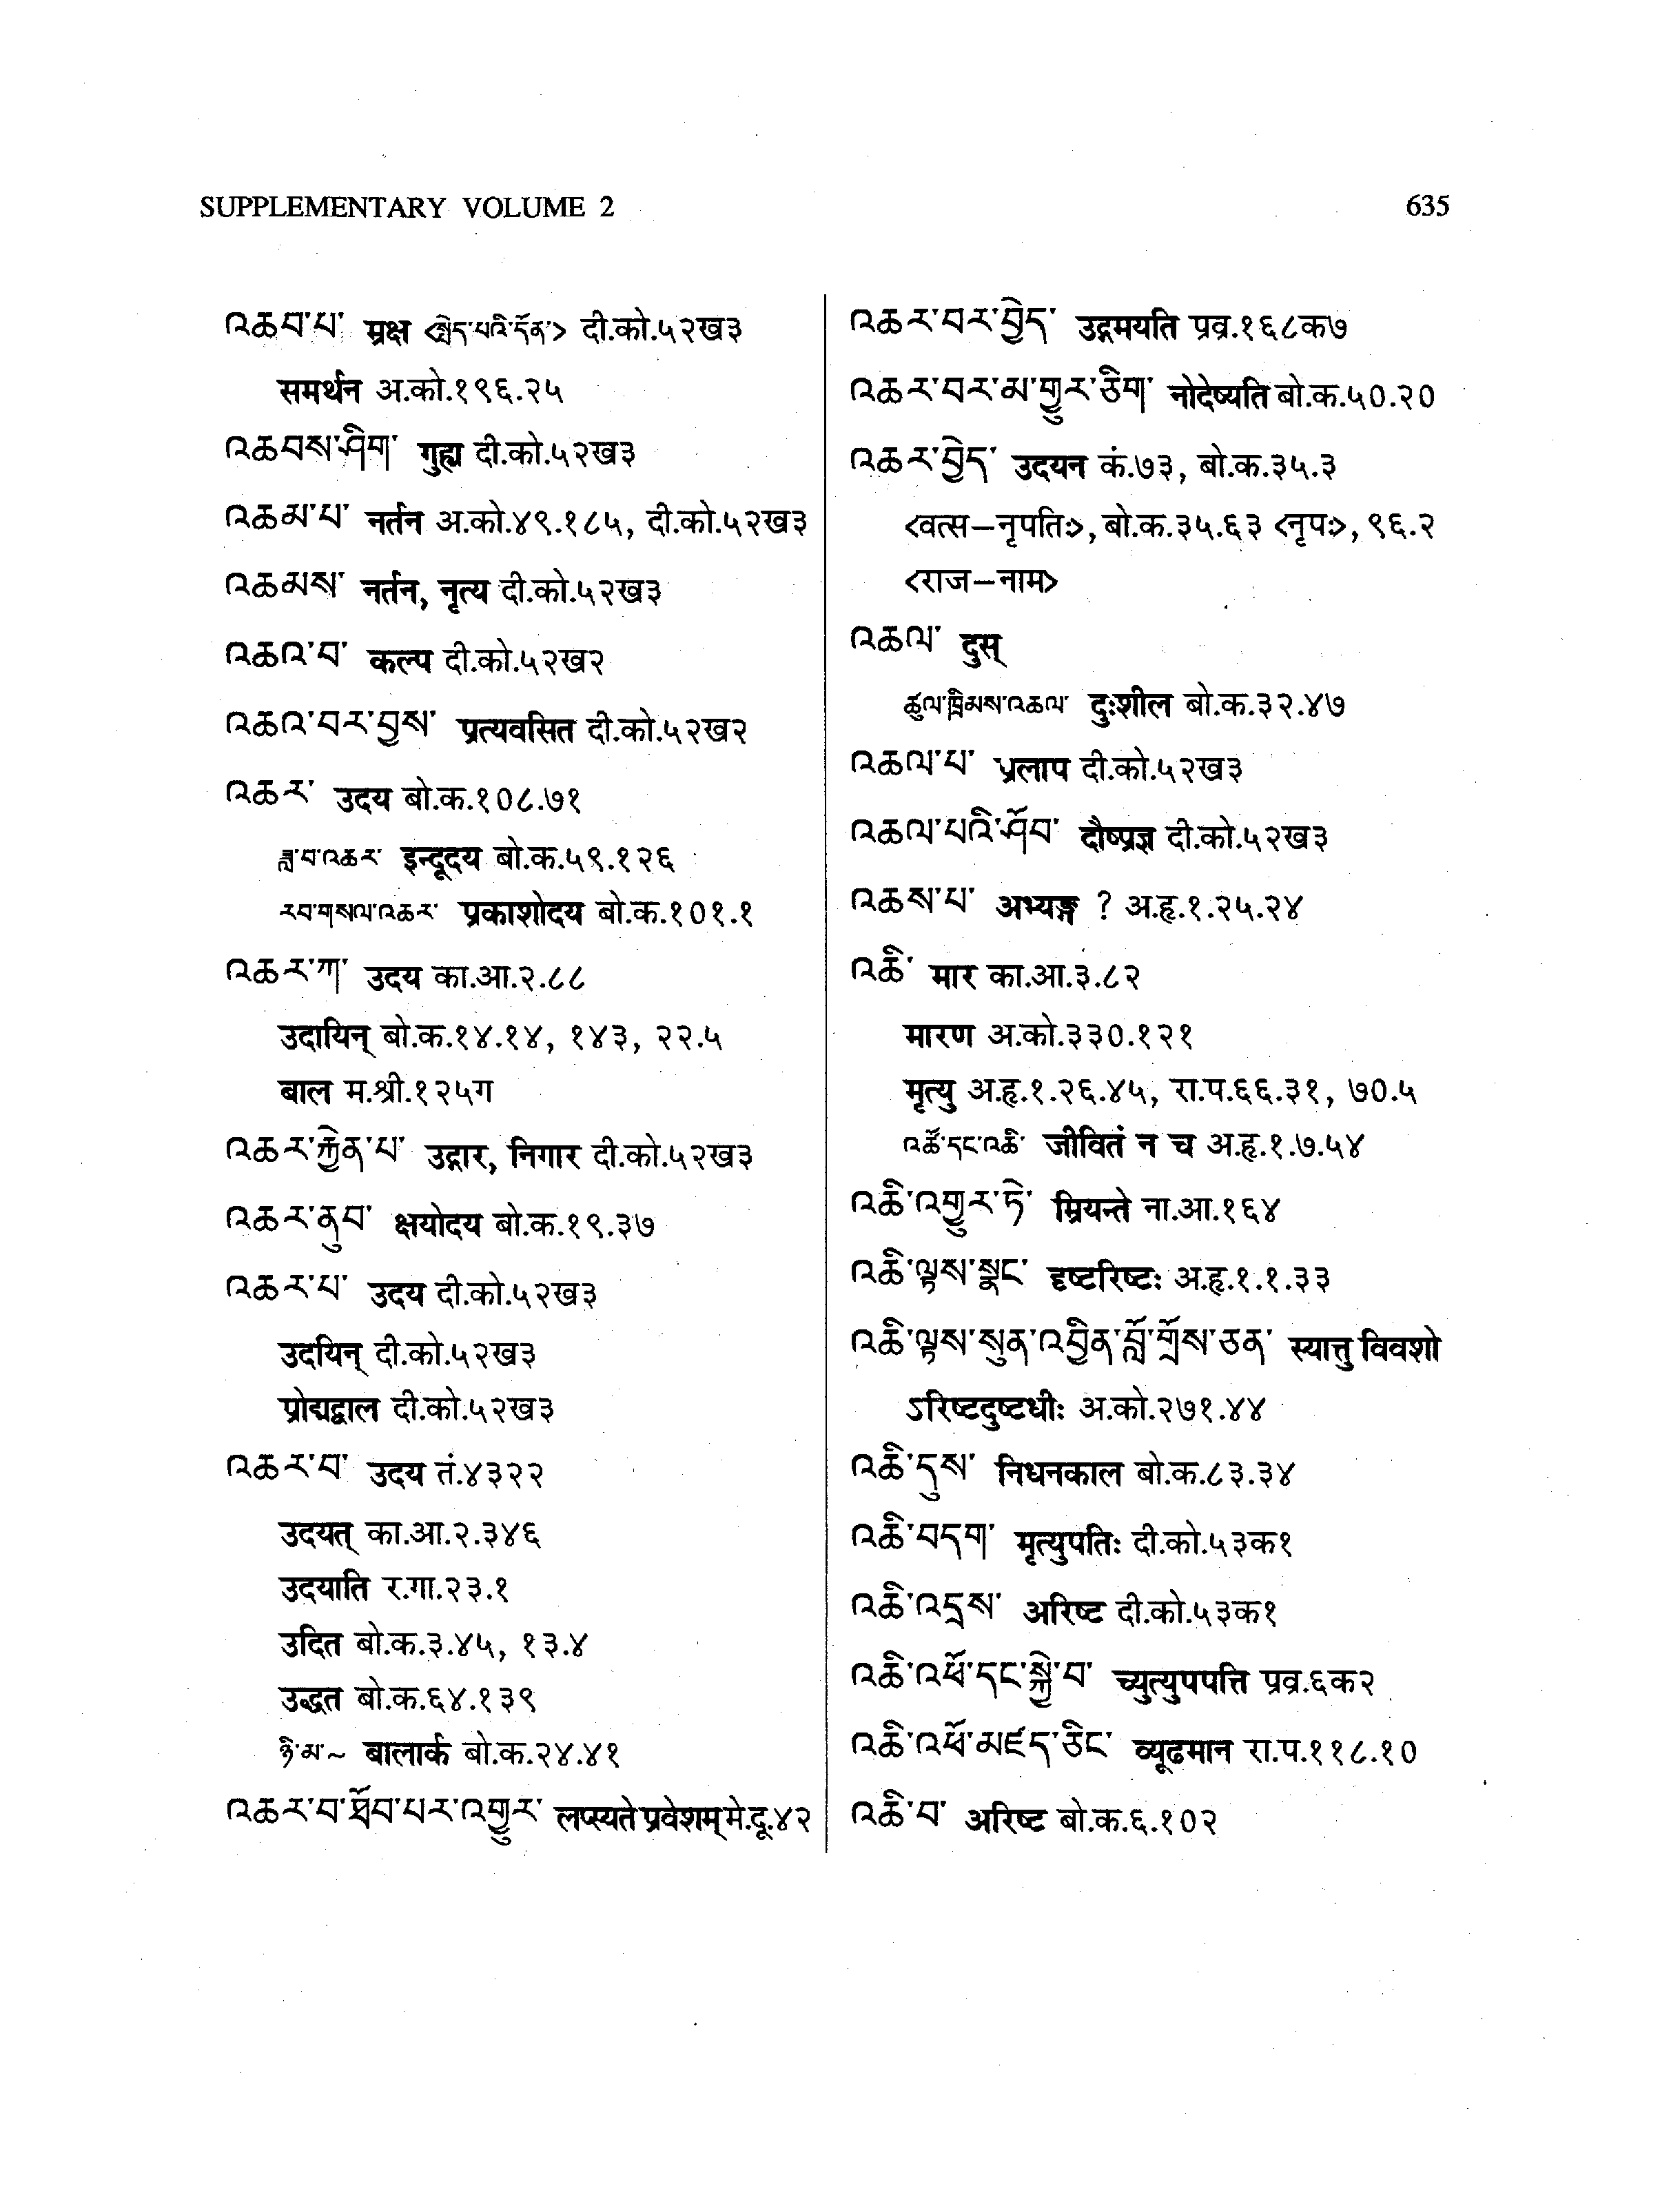 SUPPLEMENTARY VOLUME 2
635
འཆབ་པ་ म्रक्ष <སྤྱོད་པའི་དོན་> दी.को.५२ख३
समर्थन अ.को.१९६.२५
འཆབས་ཤིག་ गुह्य दी.को.५२ख३
འཆམ་པ་ नर्तन अ.को.४९.१८५, दी.को.५२ख३
འཆམས་ नर्तन, नृत्य दी.को.५२ख३
འཆའ་བ་ कल्प दी.को.५२ख२
འཆའ་བར་བྱས་ प्रत्यवसित दी.को.५२ख२
འཆར་ उदय बो.क.१०८.७१
ཟླ་བ་འཆར་ इन्दूदय बो.क.५९.१२६
རབ་གསལ་འཆར་ प्रकाशोदय बो.क.१०१.१
འཆར་ཀ་ उदय का.आ.२.८८
उदायिन् बो.क.१४.१४, १४३, २२.५
बाल म.श्री.१२५ग
འཆར་རྐྱེན་པ་ उद्गार, निगार दी.को.५२ख३
འཆར་ནུབ་ क्षयोदय बो.क.१९.३७
འཆར་པ་ उदय दी.को.५२ख३
उदयिन् दी.को.५२ख३
प्रोद्यद्वाल दी.को.५२ख३
འཆར་བ་ उदय तं.४३२२
उदयत् का.आ.२.३४६
उदयाति र.गा.२३.१
उदित बो.क.३.४५, १३.४
उद्धत बो.क.६४.१३९
ཉི་མ་~ बालार्क बो.क.२४.४१
འཆར་བ་ཐོབ་པར་འགྱུར་ लप्स्यते प्रवेशम् मे.दू.४२
འཆར་བར་བྱེད་ उद्गमयति प्रव्र.१६८क७
འཆར་བར་མ་གྱུར་ཅིག་ नोदेष्यति बो.क.५०.२०
འཆར་བྱེད་ उदयन कं.७३, बो.क.३५.३
<वत्स–नृपतिः>, बो.क.३५.६३ <नृपः>, ९६.२
<राज–नाम>
འཆལ་ दुस्
ཚུལ་ཁྲིམས་འཆལ་ दुःशील बो.क.३२.४७
འཆལ་པ་ प्रलाप दी.को.५२ख३
འཆལ་པའི་ཤོབ་ दौष्प्रज्ञ दी.को.५२ख३
འཆས་པ་ अभ्यङ्ग ? अ.हृ.१.२५.२४
འཆི་ मार का.आ.३.८२
मारण अ.को.३३०.१२१
मृत्यु अ.हृ.१.२६.४५, रा.प.६६.३१, ७०.५
འཚོ་དང་འཆི་ जीवितं न च अ.हृ.१.७.५४
འཆི་འགྱུར་ཏེ་ म्रियन्ते ना.आ.१६४
འཆི་ལྟས་སྣང་ दृष्टरिष्टः अ.हृ.१.१.३३
འཆི་ལྟས་སུན་འབྱིན་བློ་གྲོས་ཅན་ स्यात्तु विवशो
ऽरिष्टदुष्टधीः अ.को.२७१.४४
འཆི་དུས་ निधनकाल बो.क.८३.३४
འཆི་བདག་ मृत्युपतिः दी.को.५३क१
འཆི་འདྲས་ अरिष्ट दी.को.५३क१
འཆི་འཕོ་དང་སྐྱེ་བ་ च्युत्युपपत्ति प्रव्र.६क२
འཆི་འཕོ་མཛད་ཅིང་ व्यूढमान रा.प.११८.१०
འཆི་བ་ अरिष्ट बो.क.६.१०२